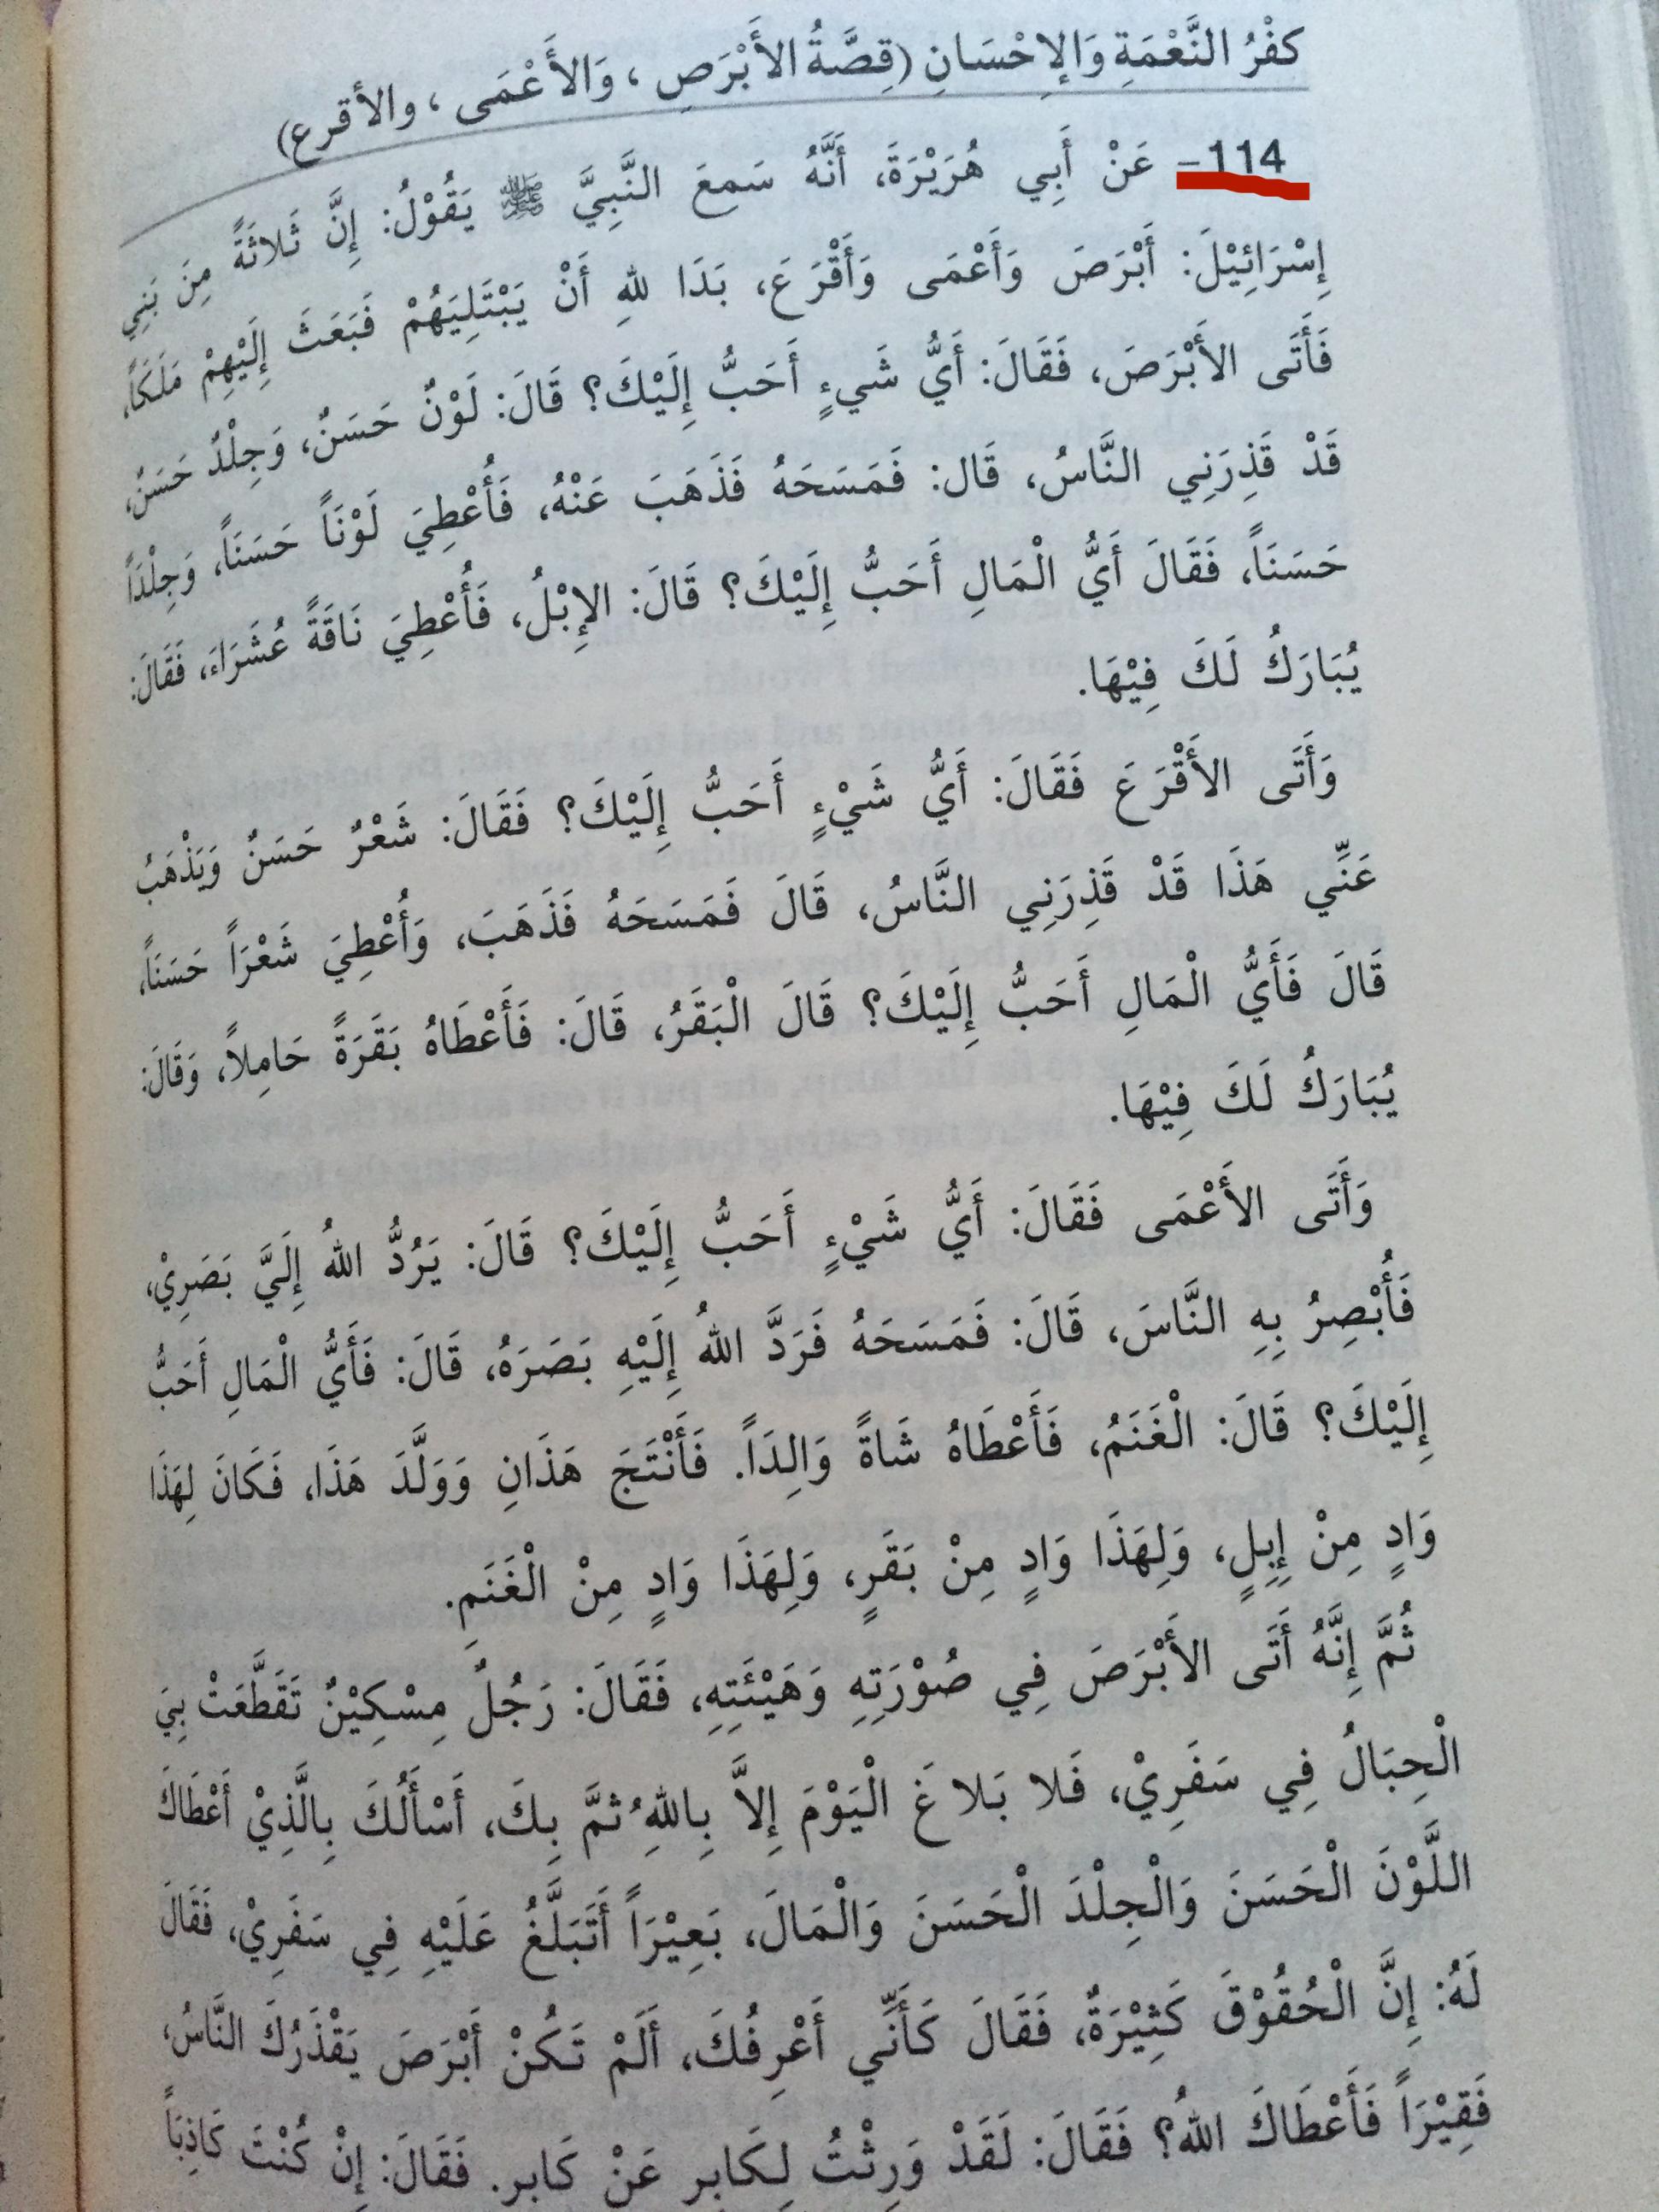 كفْرُ النَّعْمَةِ وَالإِحْسَانِ (قِصَّةُ الأَبْرَصِ ، وَالأَعْمَى ، والأقرع)
114- عَنْ أَبِي هُرَيْرَةَ، أَنَّهُ سَمعَ النَّبِيَّ ﷺ يَقُوْلُ: إِنَّ ثَلاثَةً مِنَ بَنِي
إِسْرَائِيْلَ: أَبْرَصَ وَأَعْمَى وَأَقْرَعَ، بَدَا للهِ أَنْ يَبْتَلِيَهُمْ فَبَعَثَ إِلَيْهِمْ مَلَكَاً،
فَأَتَى الأَبْرَصَ، فَقَالَ: أَيُّ شَيءٍ أَحَبُّ إِلَيْكَ؟ قَالَ: لَوْنٌ حَسَنٌ، وَجِلْدٌ حَسَنٌ،
قَدْ قَذِرَنِي النَّاسُ، قَال: فَمَسَحَهُ فَذَهَبَ عَنْهُ، فَأُعْطِيَ لَوْنَاً حَسَنَاً، وَجِلْدَاً
حَسَنَاً، فَقَالَ أَيُّ الْمَالِ أَحَبُّ إِلَيْكَ؟ قَالَ: الإِبْلُ، فَأُعْطِيَ نَاقَةً عُشَرَاءَ، فَقَالَ:
يُبَارَكُ لَكَ فِيْهَا.
وَأَتَى الأَقْرَعَ فَقَالَ: أَيُّ شَيْءٍ أَحَبُّ إِلَيْكَ؟ فَقَالَ: شَعْرٌ حَسَنٌ وَيَذْهَبُ
عَنِّي هَذَا قَدْ قَذِرَنِي النَّاسُ، قَالَ فَمَسَحَهُ فَذَهَبَ، وَأُعْطِيَ شَعْرَاً حَسَنَاً،
قَالَ فَأَيُّ الْمَالِ أَحَبُّ إِلَيْكَ؟ قَالَ الْبَقَرُ، قَالَ: فَأَعْطَاهُ بَقَرَةً حَامِلاً، وَقَالَ:
يُبَارَكُ لَكَ فِيْهَا.
وَأَتَى الأَعْمَى فَقَالَ: أَيُّ شَيْءٍ أَحَبُّ إِلَيْكَ؟ قَالَ: يَرُدُّ اللهُ إِلَيَّ بَصَرِيْ،
فَأُبْصِرُ بِهِ النَّاسَ، قَالَ: فَمَسَحَهُ فَرَدَّ اللهُ إِلَيْهِ بَصَرَهُ، قَالَ: فَأَيُّ الْمَالِ أَحَبُّ
إِلَيْكَ؟ قَالَ: الْغَنَمُ، فَأَعْطَاهُ شَاةً وَالِدَاً. فَأَنْتَجَ هَذَانِ وَوَلَّدَ هَذَا، فَكَانَ لِهَذَا
وَادٍ مِنْ إِبِلٍ، وَلِهَذَا وَادٍ مِنْ بَقَرٍ، وَلِهَذَا وَادٍ مِنْ الْغَنَم.
ثُمَّ إِنَّهُ أَتَى الأَبْرَصَ فِي صُوْرَتِهِ وَهَيْئَتِهِ، فَقَالَ: رَجُلٌ مِسْكِيْنٌ تَقَطَّعَتْ بِيَ
الْحِبَالُ فِي سَفَرِيْ، فَلا بَلاغَ الْيَوْمَ إِلاَّ بِاللهِ ثُمَّ بِكَ، أَسْأَلُكَ بِالَّذِيْ أَعْطَاكَ
اللَّوْنَ الْحَسَنَ وَالْجِلْدَ الْحَسَنَ وَالْمَالَ، بَعِيْرَاً أَتَبَلَّغُ عَلَيْهِ فِي سَفَرِيْ، فَقَالَ
لَهُ: إِنَّ الْحُقُوْقَ كَثِيْرَةٌ، فَقَالَ كَأَنِّي أَعْرِفُكَ، أَلَمْ تَكُنْ أَبْرَصَ يَقْذَرُكَ النَّاسُ،
فَقِيْرَاً فَأَعْطَاكَ اللهُ؟ فَقَالَ: لَقَدْ وَرِثْتُ لِكَابر عَنْ كَابر. فَقَالَ: إِنْ كُنْتَ كَاذِبَاً